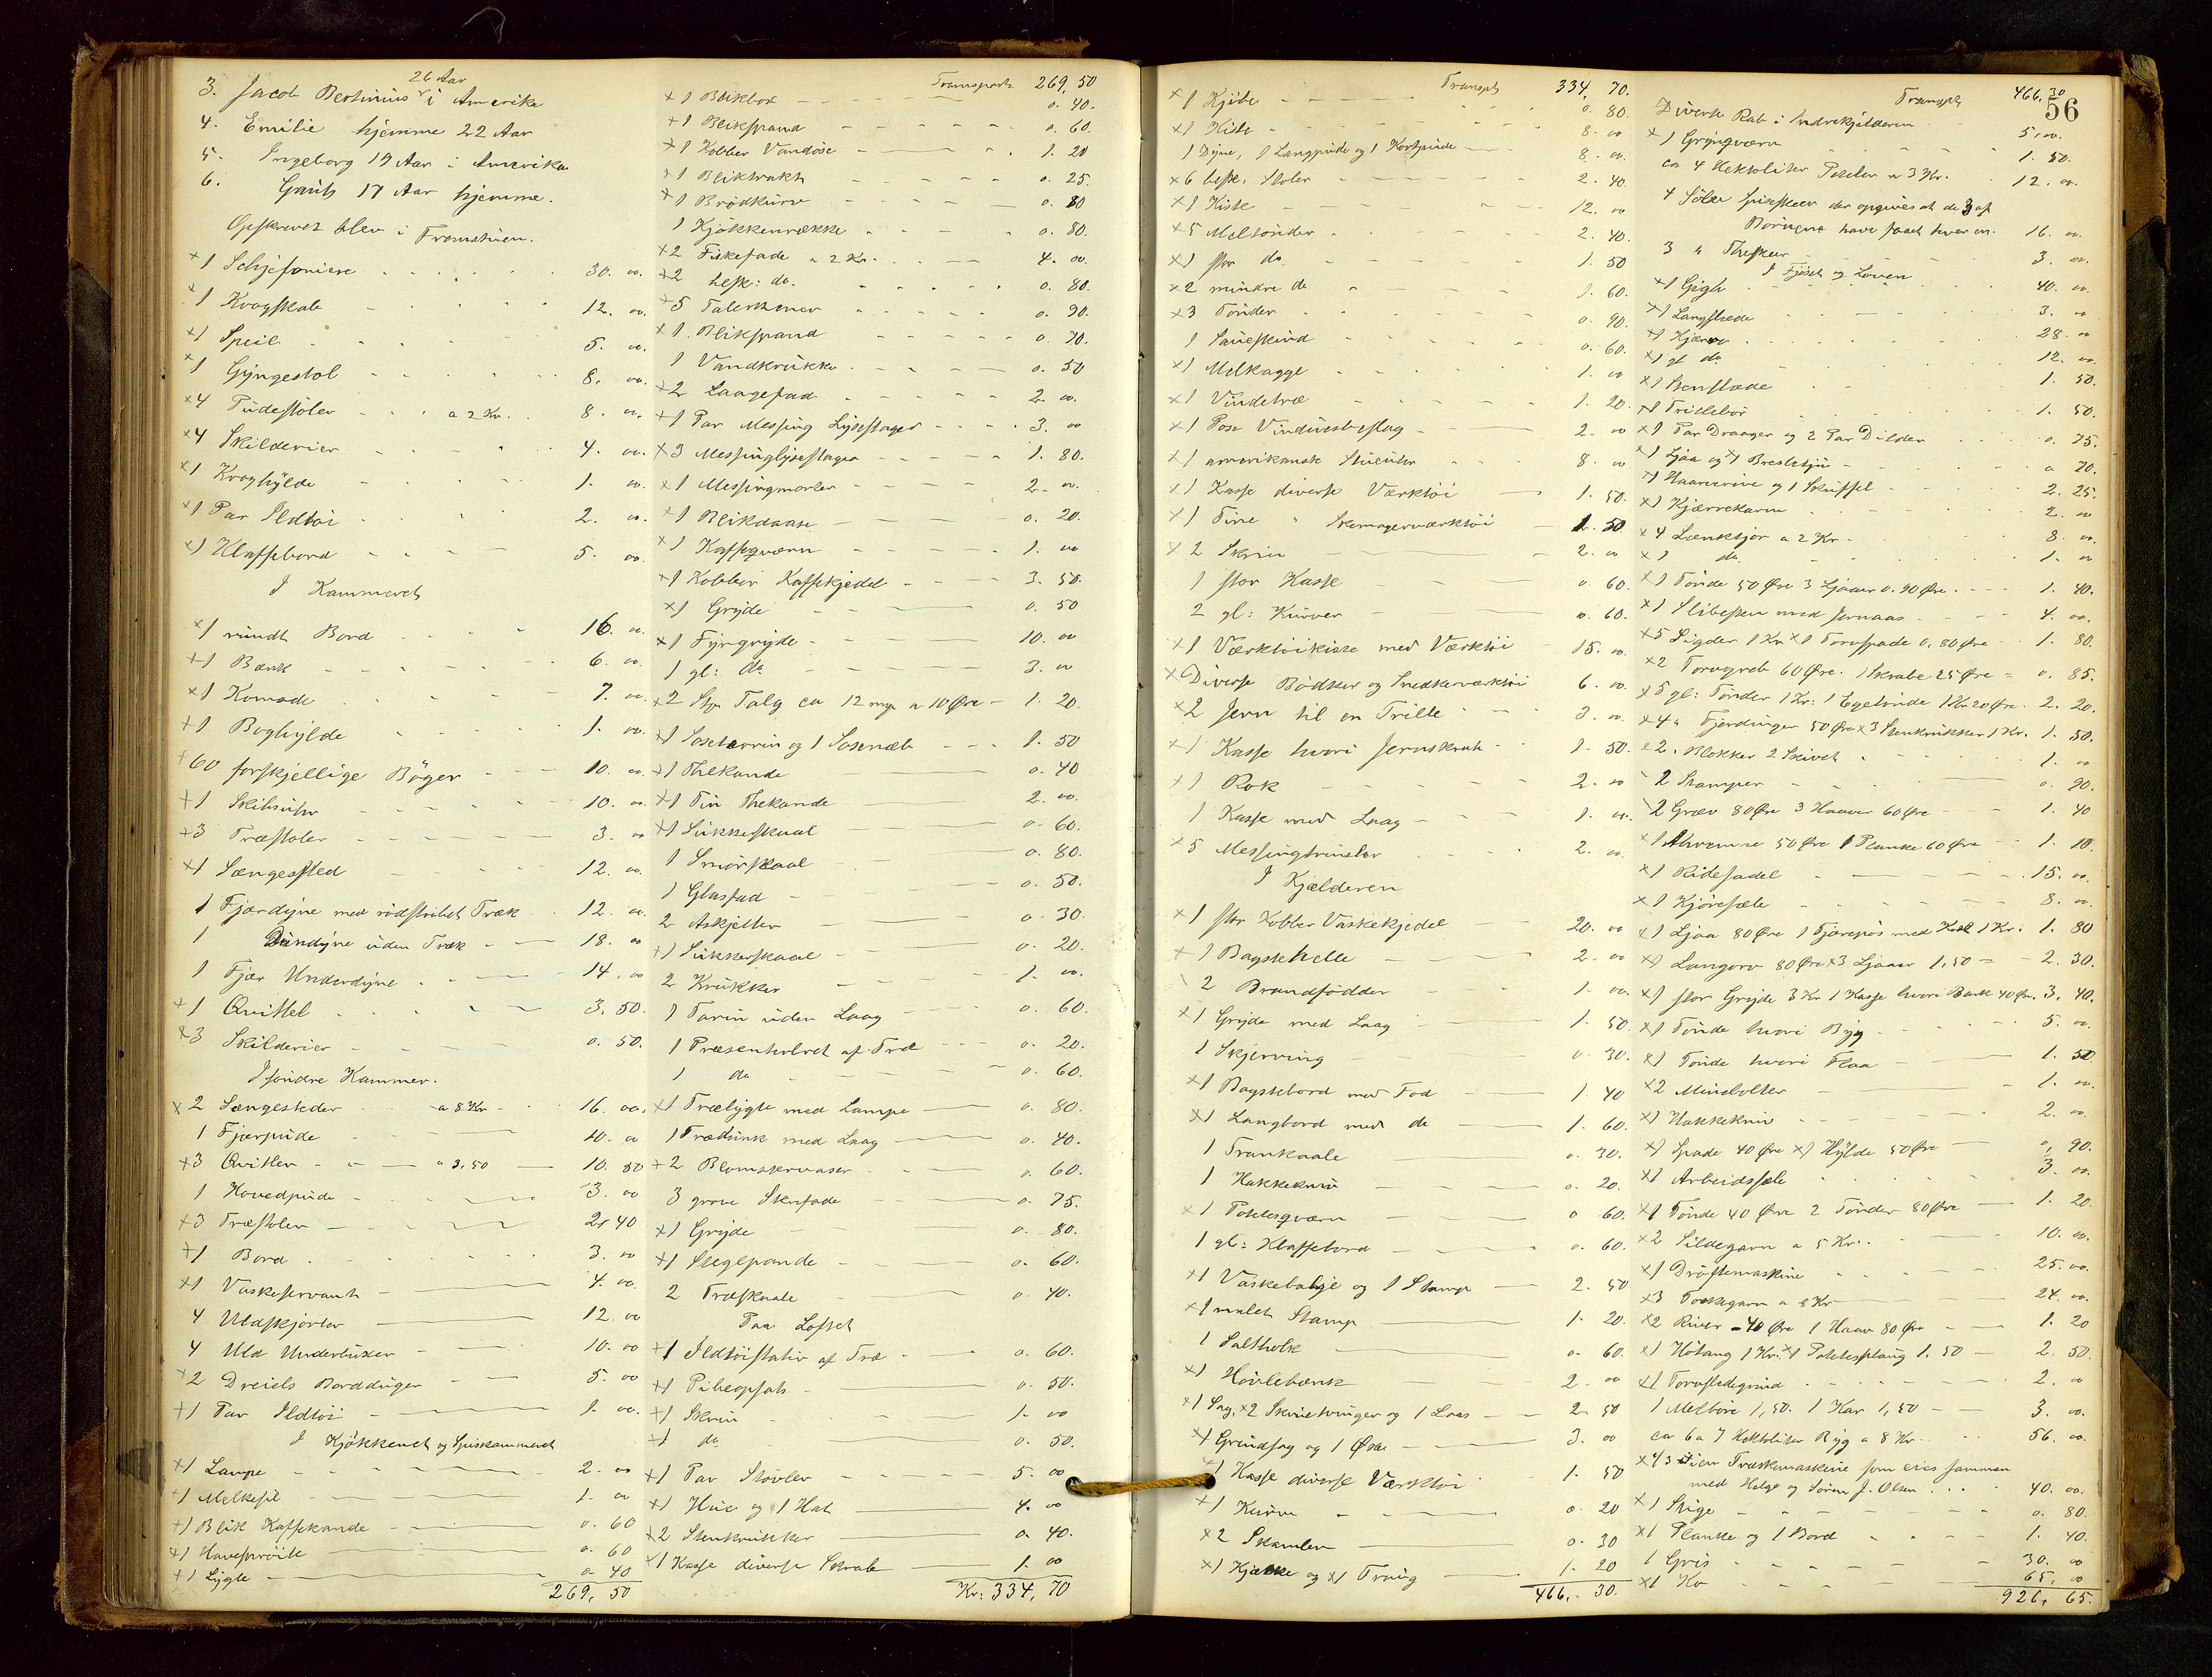 26 Aar
3. Jacob Bertinius i Amerika
4. Emilie hjemme 22 Aar
5. Ingeborg 19 Aar i Amerika
6. Gauts 17 Aar hjemme.
Opskrevet blev i Framstuen.
×1 Schefoniere 30. 00.
×1 Kragskab 12. 00.
×1 Speil 5. 00.
×1 Gyngestol 8. 00.
×4 Pudestoler a 2 Kr. 8. 00.
×4 Skilderier 4. 00.
×1 Kroghylde 1. 00.
×1 Par Ildtøi 2. 00.
×1 Klaffebord 5. 00
I Kammeret
×1 rundt Bord 16. 00.
+1 Bænk 6. 00.
×1 Komode 7. 00.
+1 Boghylde 1. 00.
+60 forskjellige Bøger 10. 00.
+1 Skibsuhr 10. 00.
+3 Træstoler 3. 00
×1 Sængested 12. 00.
1 Fjærdyne med rødstribet Træk 12. 00.
1 Dundyne uden Træk 18. 00
1 Fjær Underdyne 14. 00
+1 Qvittel 3. 50.
×3 Skilderier 0. 50.
I søndre Kammer.
×2 Sængesteder a 8 Kr 16. 00.
1 Fjærpude 10. 00
+3 Qvitler a 3,50 10. 50
1 Hovedpude 3. 00
+3 Træstoler 2. 40
+1 Bord 3. 00
×1 Vaskeservant 4. 00.
4 Uldskjorter 12. 00
4 Uld Underbuxer 10. 00
+2 Dreiels Borddüger 5. 00
+1 Par Ildtøi 1. 00.
I Kjøkkenet og Spiskammeret
×1 Lampe 2. 00
+1 Melkesil 1. 00
+1 Blik Kaffekande 0. 60
+1 Havesprøite 0. 60
+1 Lygte 0. 40
269, 50

Transport 269, 50
×1 Blikbox 0. 40.
+1 Blikspand 0. 60.
×1 Kobber Vandøse 1. 20
×1 Bliktrakt 0. 25.
×1 Brødkurv 0. 80
1 Kjøkkenrække 0. 80.
×2 Fiskefade a 2 Kr. 4. 00.
×2 besk: do. 0. 80.
+5 Talerkener 0. 90.
×1 Blikspand 0. 70.
1 Vandkrukke 0. 50
+2 Laagefad 2. 00.
+1 Par Messing Lysestager 3. 00
×3 Messinglysestager 1. 80.
×1 Messingmorter 2. 00.
×1 Blikdaase 0. 20.
×1 Kaffeqværn 1. 00
×1 Kobber Kaffekjedel 3. 50.
×1 Gryde 0. 50
×1 Fyrgryde 10. 00
1 gl: do 3. 00
×2 Talg ca 12 mrp a 10 Øre 1. 20.
×1 Soseterrin og 1 Sosenæb 1. 50
×1 Thekande 0. 40
×1 Tin Thekande 2. 00.
×1 Sukkerskaal 0. 60.
1 Smørskaal 0. 80.
1 Glasfad 0. 50.
2 Askjetter 0. 30.
+1 Sukkerskaal 0. 20.
2 Krukker 1. 00.
1 Tarin uden Laag 0. 60.
1 Præsenterbret af Træ 0. 20.
1 do 0. 60.
×1 Trælygte med Lampe 0. 80.
1 Trædunk med Laag 0. 40.
+2 Blomstervaser 0. 60.
3 grove Stenfade 0. 75.
×1 Gryde 0. 80.
×1 Stegepande 0. 60.
2 Træskaale 0. 40.
Paa Loftet
+1 Ildtøistativ af Træ 0. 60.
×1 Pibeopsats 0. 50.
×1 Skrin 1. 00
×1 do 0. 50.
×1 Par Støvler 5. 00
×1 Hue og 1 Hat 4. 00
×2 Stenkrukker 0. 40.
×1 Kasse diverse Skrab 1. 00
Kr: 334, 70

Transpt 334, 70.
×1 Kjibe 0. 80.
×1 Kiste 8. 00
1 Dyne, 1 Langpude og 1 Kortpude 8. 00.
×6 besk. Stoler 2. 40.
×1 Kiste 12. 00
×5 Meltønder 2. 40.
×1 stor do 1. 50
×2 mindre do 1. 60.
×3 Tønder 0. 90.
1 Saueskind 0. 60.
×1 Melkagge 1. 00
×1 Vindetræ 1. 20.
×1 Pose Vinduesbeslag 2. 00
×1 amerikansk Stueuhr 8. 00
×1 Kasse diverse Værktøi 1. 50.
×1 Tine " Skomagerværktøi 1. 50
×2 Skrin 2. 00
1 stor Kasse 0. 60.
2 gl: Kurver 0. 60.
×1 Værktøikiste med Værktøi 15. 00.
×Diverse Bødker og Snedkerværktøi 6. 00.
×2 Jern til en Trille 3. 00.
×1 Kasse hvori Jernskrab 1. 50.
×1 Rok 2. 00
1 Kasse med Laag 1. 00.
×5 Messingtrinsler 2. 00.
I Kjælderen
×1 stor Kobber Vaskekjedel 20. 00
×1 Bagstehelle 2. 00
2 Brandfødder 1. 00.
×1 Gryde med Laag 1. 50.
1 Skjerving 0. 30.
×1 Bagstebord med Fod 1. 40
×1 Langbord med do 1. 60.
1 Trankaale 0. 30.
1 Hakkekniv 0. 20.
×1 Potetesqværn 0 60.
1 gl: Klaffebord 0. 60.
×1 Vaskebalje og 1 Stamp 2. 50
×1 malet Stamp 1. 20.
1 Saltholk 0. 60.
×1 Høvlebænk 2. 00
×1 Sag, ×2 Skruetvinger og 1 Laas 2. 50
×1 Grindsag og 1 Øxe 3. 00
×1 Kasse diverse Værktøi 1. 50
×1 Kurv 0. 20
×2 Skamler 0. 30
×1 Kjække og ×1 Traug 1. 20
466, 30.

56
Transpt 466, 30
Diverse Rab i Indrekjelderen 5. 00.
×1 Grynqværn 1. 50.
ca 4 Hektoliter Poteter a 3 Kr. 12. 00.
4 Sølv Spiseskeer der opgives at de 3 af
Børnene have faaet hver en. 16. 00.
3 " Theskeer 3. 00.
I Fjøset og Loven
×1 Gigh 40. 00.
×1 Langslæde 3. 00
×1 Kjærre 28. 00
×1 gl do 12. 00.
×1 Stenslæde 1. 50.
×1 Trillebør 1. 50.
×1 Par Draager og 2 Par Dilder 0. 75.
×1 Ljaa og ×1 Bredstju 0 70.
×1 Haarrive og 1 Skuffel 2. 25.
×1 Kjærrekarm 2. 00
×4 Lænkstjor a 2 Kr 8. 00.
×1 do. 1. 00
×1 Tønde 50 Øre 3 Ljaaer 0. 90 Øre 1. 40.
×1 Slibesten med Jernaas 4. 00.
×5 Sigder 1 Kr ×1 Torvspade 0. 80 Øre 1. 80.
×2 Torvgreb 60 Øre. 1 Skrabe 25 Øre = 0. 85.
×5 gl: Tønder 1 Kr: 1 Egetønde 1 Kr 20 Øre. 2. 20.
×4 " Fjerdinger 50 Øre ×3 Stenkrukker 1 Kr. 1. 50.
×2. Blokker 2 Skiver 1. 00
2 Stamper 0. 90.
2 Græv 80 Øre 3 Haaver 60 Øre 1. 40
50 Øre 1 Planke 60 Øre 1. 10.
×1 Ridesadel 15. 00.
×1 Kjøresæle 8. 00.
×1 Ljaa 80 Øre 1 Tjærepøs med Kost 1 Kr: 1. 80
×1 Langorv 80 Øre ×3 Ljaaer 1,50 = 2. 30.
×1 stor Gryde 3 Kr 1 Kasse hvori Bark 40 Øre. 3, 40.
×1 Tønde hvori Byg 5. 00.
×1 Tønde hvori Flaa 1. 50
×2 Minebolter 1. 00.
×1 Hakkekniv 2. 00.
×1 Spade 40 Øre ×1 Hylde 50 Øre 0, 90.
×1 Arbeidssæle 3. 00.
×1 Tønde 40 Øre 2 Tønder 80 Øre 1. 20.
×2 Sildegarn a 5 Kr. 10. 00.
×1 Drøftemaskine 25. 00.
×3 Torskegarn a 8 Kr 24. 00.
×2 River - 40 Øre 1 Haav 80 Øre 1. 20
×1 Høtang 1 Kr. ×1 Potetesplaug 1. 50 2. 50.
×1 Torvstedgrind 2. 00
1 Melbøre 1,50. 1 Kar 1,50 3. 00.
ca 6 a 7 Hektoliter Byg a 8 Kr 56. 00.
Træskemaskine som eies sammen
med Helge og Søren J. Olsen 40. 00.
×1 Stige 0. 80.
×1 Planke og 1 Bord 1. 40.
1 Gris 30. 00
×1 Ko 65. 00
926, 65.